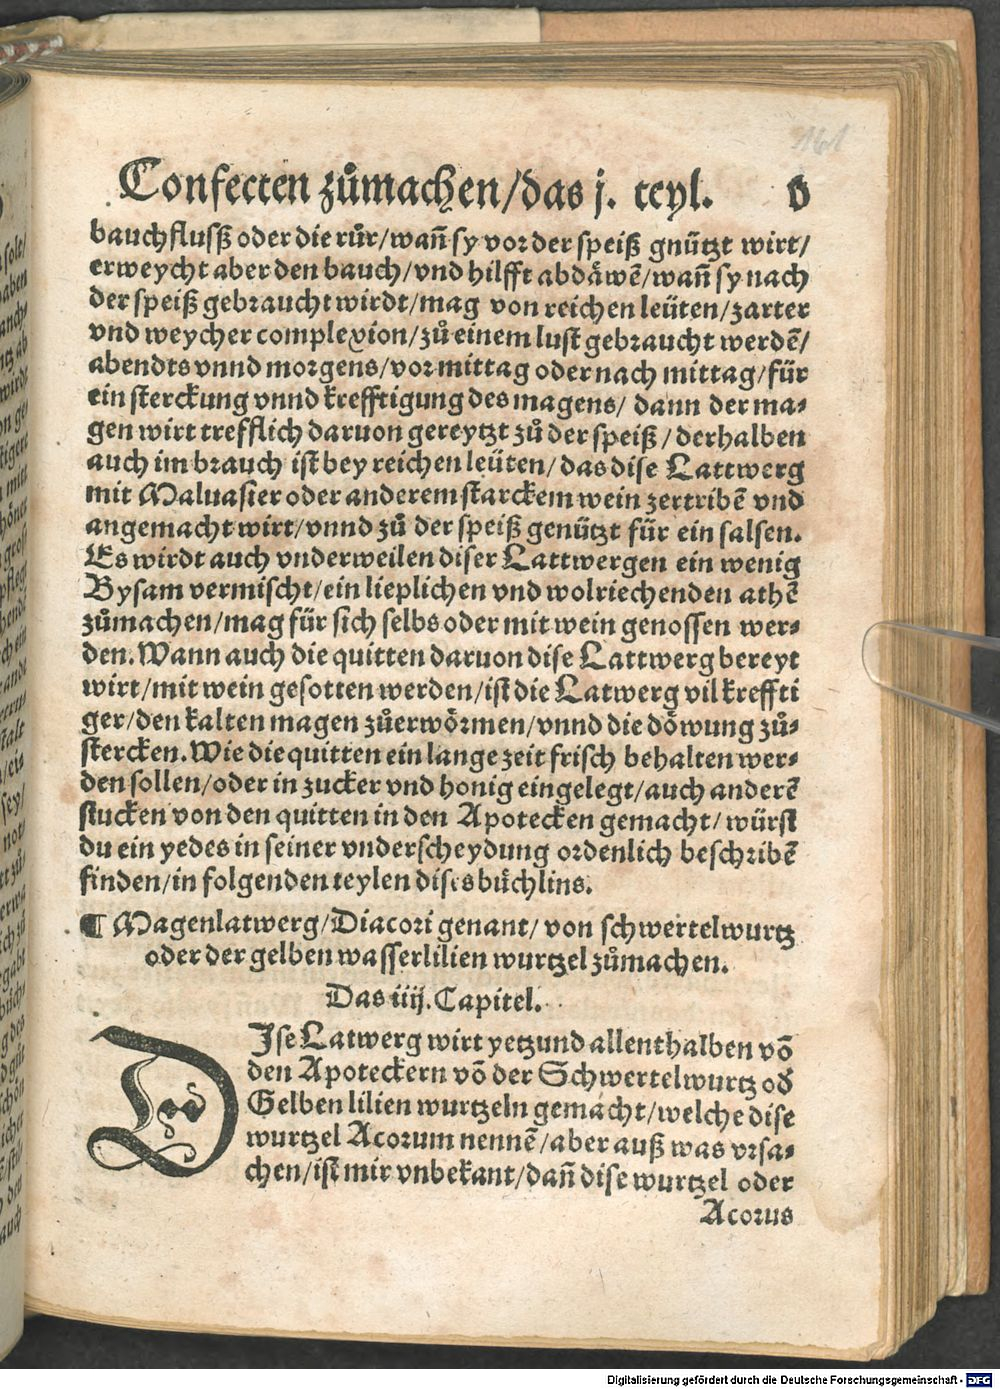 161
Confecten zůmachen/das j. teyl. v
bauchflusß oder die růr/wañ sy vor der speiß gnützt wirt/
erweycht aber den bauch/vnd hilfft abdäwē/wañ sy nach
der speiß gebraucht wirdt/mag von reichen leüten/zarter
vnd weycher complexion/zů einem lust gebraucht werdē/
abendts vnnd morgens/vor mittag oder nach mittag/für
ein sterckung vnnd krefftigung des magens/ dann der ma-
gen wirt trefflich daruon gereytzt zů der speiß/derhalben
auch im brauch ist bey reichen leüten/das dise Lattwerg
mit Maluasier oder anderem starckem wein zertribē vnd
angemacht wirt/vnnd zů der speiß genützt für ein salsen.
Es wirdt auch vnderweilen diser Lattwergen ein wenig
Bysam vermischt/ein lieplichen vnd wolriechenden athē
zůmachen/mag für sich selbs oder mit wein genossen wer-
den. Wann auch die quitten daruon dise Lattwerg bereyt
wirt/mit wein gesotten werden/ist die Latwerg vil kreffti
ger/den kalten magen zůerwörmen/vnnd die döwung zů-
stercken. Wie die quitten ein lange zeit frisch behalten wer-
den sollen/oder in zucker vnd honig eingelegt/auch anderē
stucken von den quitten in den Apotecken gemacht/würst
du ein yedes in seiner vnderscheydung ordenlich beschribē
finden/in folgenden teylen dises büchlins.
¶ Magenlatwerg/Diacori genant/ von schwertelwurtz
oder der gelben wasserlilien wurtzel zůmachen.
Das iiij. Capitel.
DJse Latwerg wirt yetzund allenthalben vō
den Apoteckern vō der Schwertelwurtz od
Gelben lilien wurtzeln gemacht/welche dise
wurtzel Acorum nennē/aber auß was vrsa-
chen/ist mir vnbekant/dañ dise wurtzel oder
Acorus
Digitalisierung gefördert durch die Deutsche Forschungsgemeinschaft - DFG